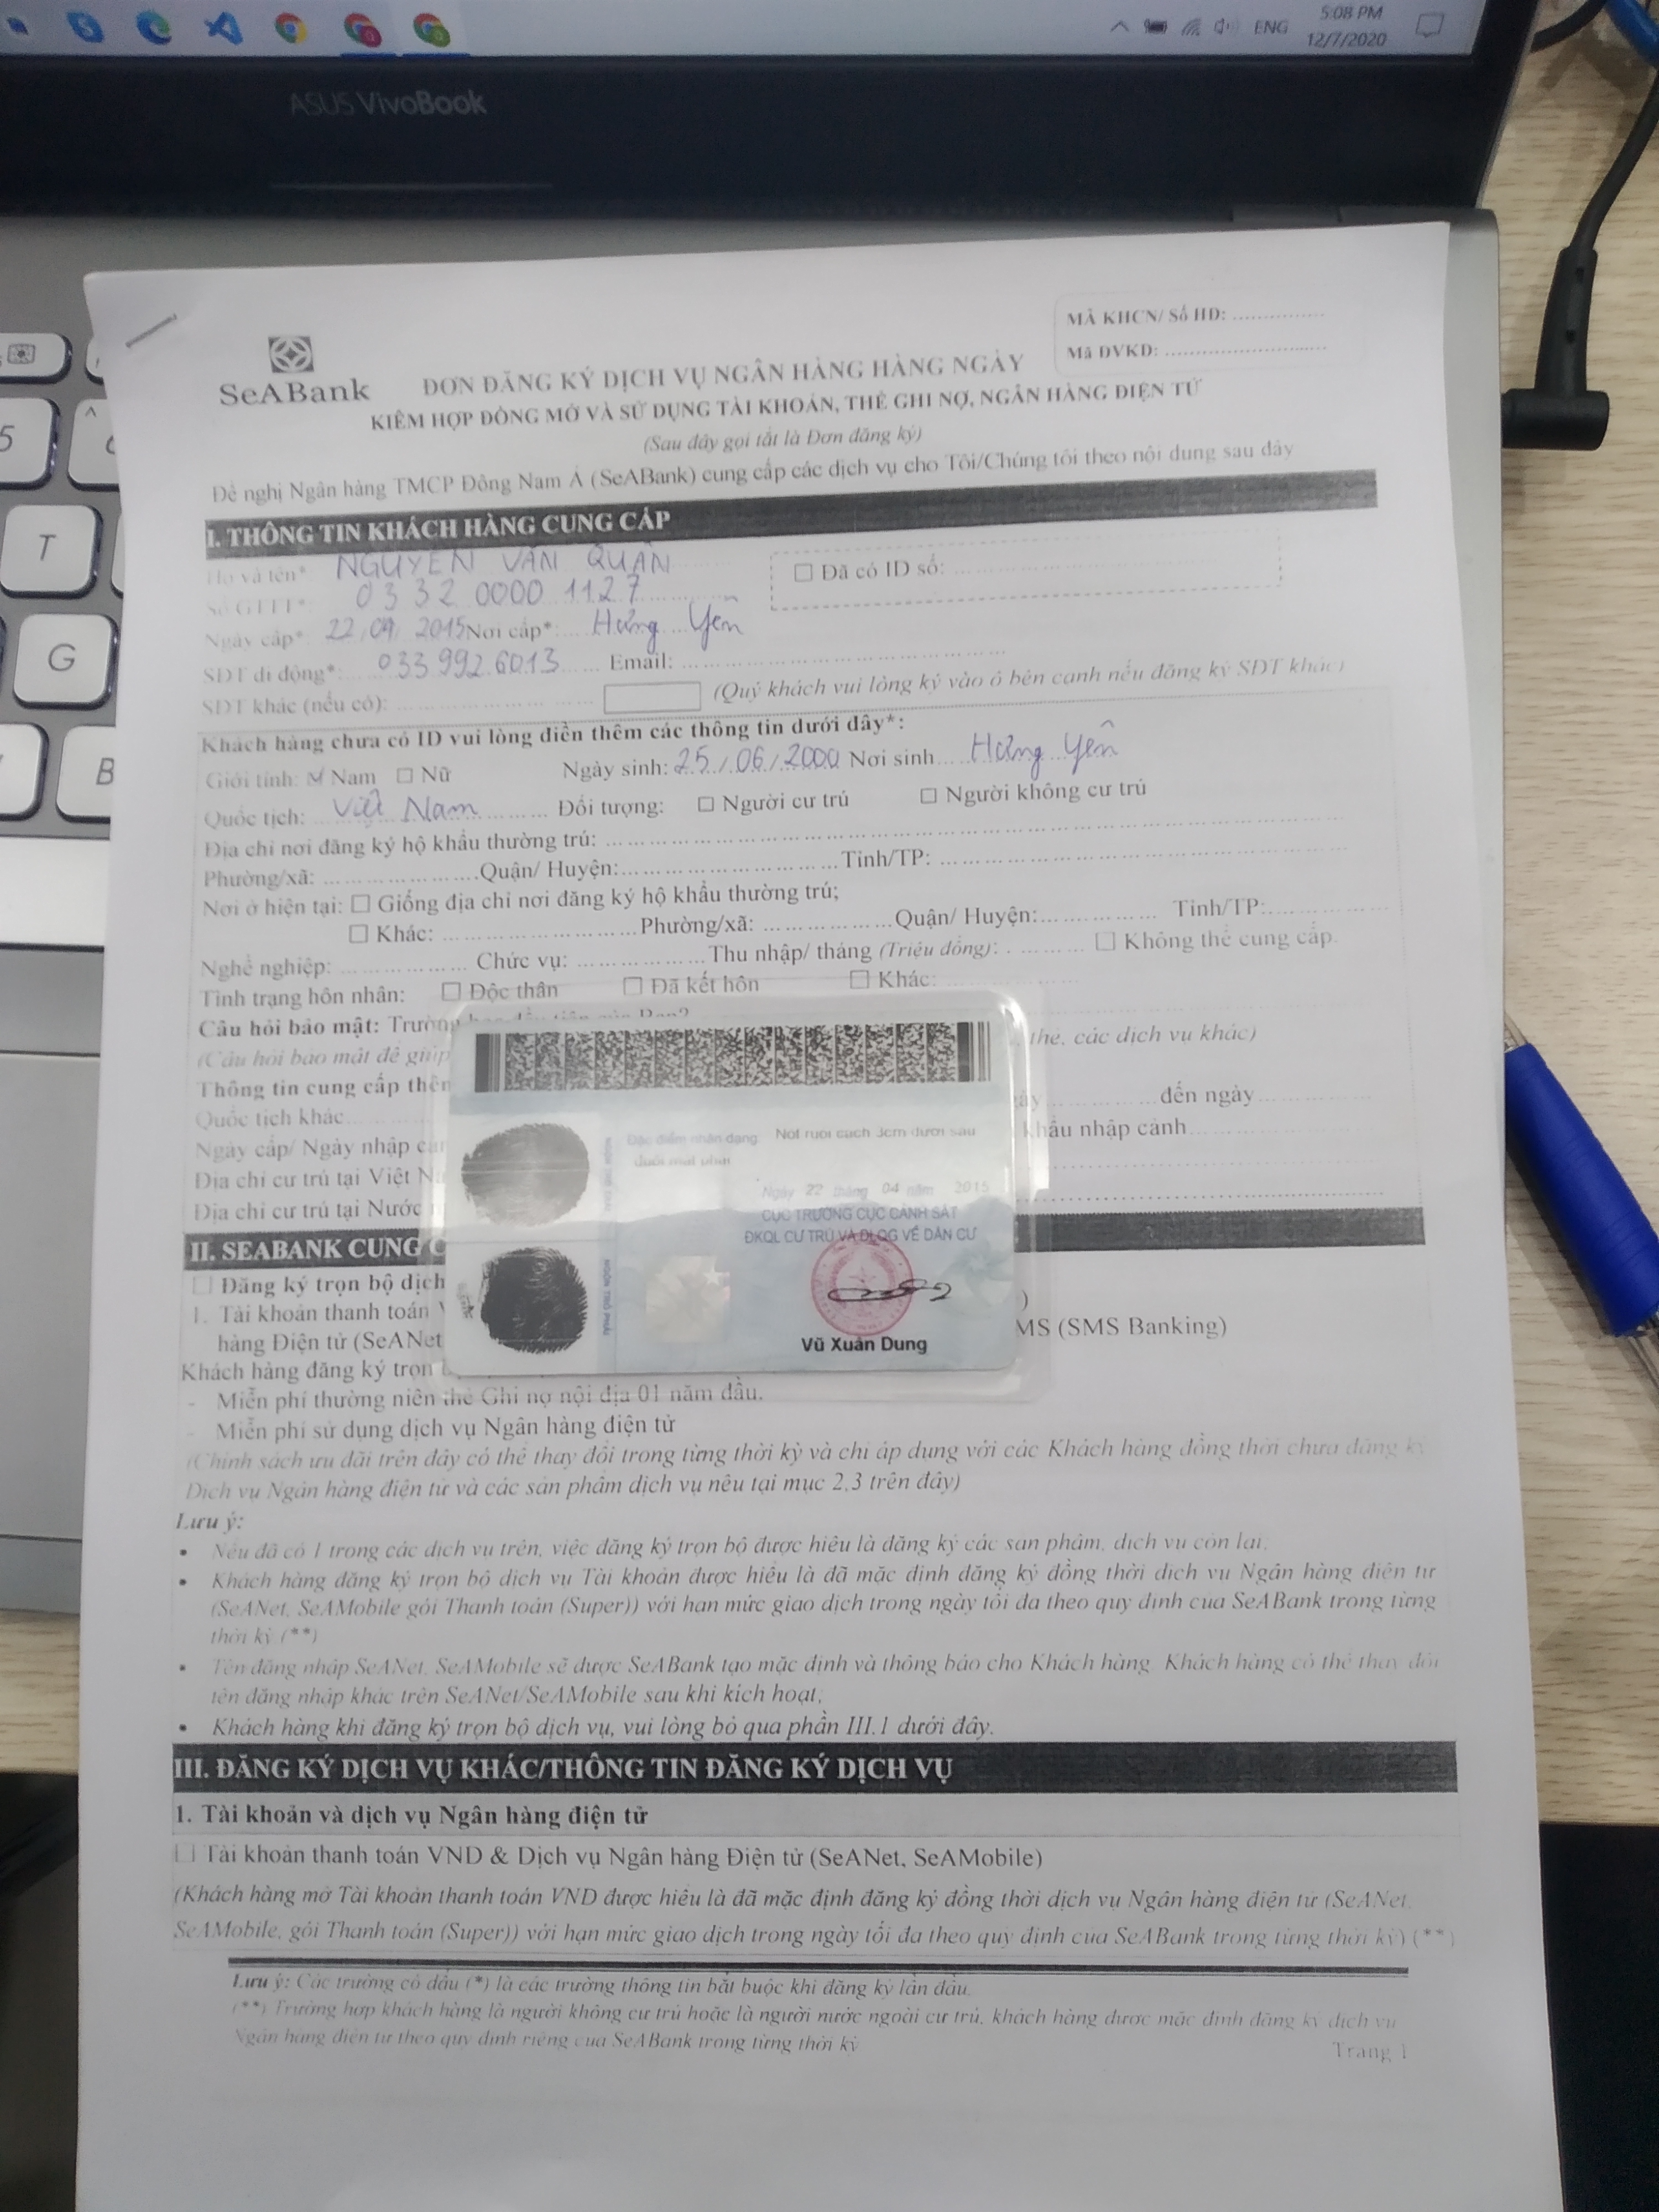 5:08 PM
ENG
12/7/2020
ASUS VivoBook
MÃ KHCN/ Số HĐ: ................
Mã ĐVKD: ............................
SeABank
ĐƠN ĐĂNG KÝ DỊCH VỤ NGÂN HÀNG HÀNG NGÀY
KIÊM HỢP ĐỒNG MỞ VÀ SỬ DỤNG TÀI KHOẢN, THẺ GHI NỢ, NGÂN HÀNG ĐIỆN TỬ
(Sau đây gọi tắt là Đơn đăng ký)
Đề nghị Ngân hàng TMCP Đông Nam Á (SeABank) cung cấp các dịch vụ cho Tôi/Chúng tôi theo nội dung sau đây
I. THÔNG TIN KHÁCH HÀNG CUNG CẤP
Họ và tên*: NGUYỄN VĂN QUÂN
☐ Đã có ID số: ................
Số GTTT*: 0332 0000 1127
Ngày cấp*: 22/04/2015 Nơi cấp*: Hưng Yên
SĐT di động*: 0339926013 Email: ................
SĐT khác (nếu có): ................ (Quý khách vui lòng ký vào ô bên cạnh nếu đăng ký SĐT khác)
Khách hàng chưa có ID vui lòng điền thêm các thông tin dưới đây*:
Giới tính: ☑ Nam ☐ Nữ Ngày sinh: 25/06/2000 Nơi sinh Hưng Yên
Quốc tịch: Việt Nam Đối tượng: ☐ Người cư trú ☐ Người không cư trú
Địa chỉ nơi đăng ký hộ khẩu thường trú: ................
Phường/xã: ................ Quận/ Huyện: ................ Tỉnh/TP: ................
Nơi ở hiện tại: ☐ Giống địa chỉ nơi đăng ký hộ khẩu thường trú;
☐ Khác: ................ Phường/xã: ................ Quận/ Huyện: ................ Tỉnh/TP: ................
Nghề nghiệp: ................ Chức vụ: ................ Thu nhập/ tháng (Triệu đồng): ................ ☐ Không thể cung cấp.
Tình trạng hôn nhân: ☐ Độc thân ☐ Đã kết hôn ☐ Khác: ................
Câu hỏi bảo mật: Trường
(Câu hỏi bảo mật để giúp thẻ, các dịch vụ khác)
Thông tin cung cấp thêm
Quốc tịch khác ................ đến ngày ................
Ngày cấp/ Ngày nhập khẩu nhập cảnh ................
Địa chỉ cư trú tại Việt
Địa chỉ cư trú tại Nước
Đặc điểm nhận dạng: Nốt ruồi cách 3cm dưới sau
đuôi mắt phải
Ngày 22 tháng 04 năm 2015
CỤC TRƯỞNG CỤC CẢNH SÁT
ĐKQL CƯ TRÚ VÀ DLQG VỀ DÂN CƯ
NGÓN TRỎ PHẢI
Vũ Xuân Dung
II. SEABANK CUNG
☐ Đăng ký trọn bộ dịch
1. Tài khoản thanh toán )
hàng Điện tử (SeANet MS (SMS Banking)
Khách hàng đăng ký trọn
- Miễn phí thường niên thẻ Ghi nợ nội địa 01 năm đầu.
- Miễn phí sử dụng dịch vụ Ngân hàng điện tử
(Chính sách ưu đãi trên đây có thể thay đổi trong từng thời kỳ và chỉ áp dụng với các Khách hàng đồng thời chưa đăng ký
Dịch vụ Ngân hàng điện tử và các sản phẩm dịch vụ nêu tại mục 2,3 trên đây)
Lưu ý:
• Nếu đã có 1 trong các dịch vụ trên, việc đăng ký trọn bộ được hiểu là đăng ký các sản phẩm, dịch vụ còn lại;
• Khách hàng đăng ký trọn bộ dịch vụ Tài khoản được hiểu là đã mặc định đăng ký đồng thời dịch vụ Ngân hàng điện tử
(SeANet, SeAMobile gói Thanh toán (Super)) với hạn mức giao dịch trong ngày tối đa theo quy định của SeABank trong từng
thời kỳ (**)
• Tên đăng nhập SeANet, SeAMobile sẽ được SeABank tạo mặc định và thông báo cho Khách hàng. Khách hàng có thể thay đổi
tên đăng nhập khác trên SeANet/SeAMobile sau khi kích hoạt;
• Khách hàng khi đăng ký trọn bộ dịch vụ, vui lòng bỏ qua phần III.1 dưới đây.
III. ĐĂNG KÝ DỊCH VỤ KHÁC/THÔNG TIN ĐĂNG KÝ DỊCH VỤ
1. Tài khoản và dịch vụ Ngân hàng điện tử
☐ Tài khoản thanh toán VND & Dịch vụ Ngân hàng Điện tử (SeANet, SeAMobile)
(Khách hàng mở Tài khoản thanh toán VND được hiểu là đã mặc định đăng ký đồng thời dịch vụ Ngân hàng điện tử (SeANet,
SeAMobile, gói Thanh toán (Super)) với hạn mức giao dịch trong ngày tối đa theo quy định của SeABank trong từng thời kỳ) (**)
Lưu ý: Các trường có dấu (*) là các trường thông tin bắt buộc khi đăng ký lần đầu.
(**) Trường hợp khách hàng là người không cư trú hoặc là người nước ngoài cư trú, khách hàng được mặc định đăng ký dịch vụ
Ngân hàng điện tử theo quy định riêng của SeABank trong từng thời kỳ
Trang 1